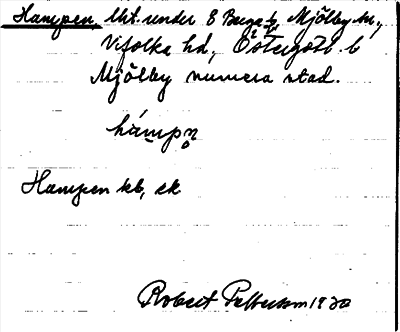 Hampen, Uti. under 8 Buga by, Mjölby sn,
Vifolka hd, Östergötl. l
Mjölby numera stad.
hámpn̥
Hampen kb, ek
Robert Pettersson 1930